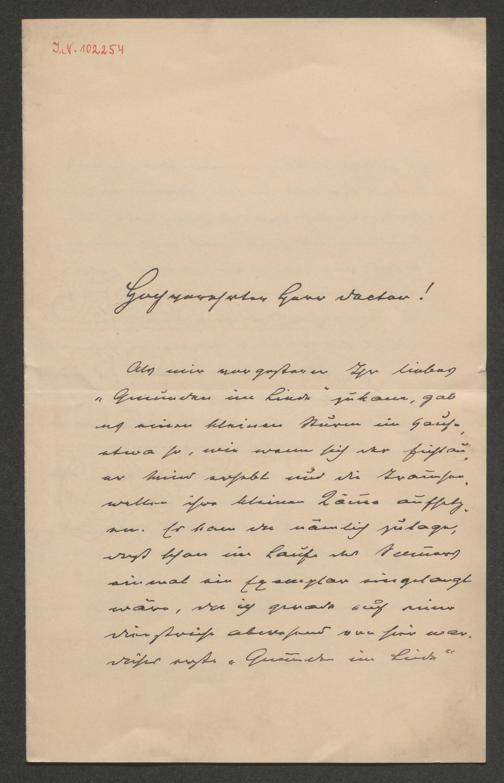 J.N. 102254
Hochverehrter Herr Doctor!
Als mir vorgestern Ihr liebes
„Gmunden im Liede" zukam, gab
es einen kleinen Sturm im Hause,
etwa so, wie wenn sich der
er Wind erhebt und die Traunsee-
wellen ihre kleinen Käme aufsetz-
en. Es kam da nämlich zutage,
daß schon im Laufe des Sommers
einmal ein Exemplar eingelangt
wäre, da ich gerade auf einer
Dienstreise abwesend von hier war.
Dieses erste „Gmunden im Liede"